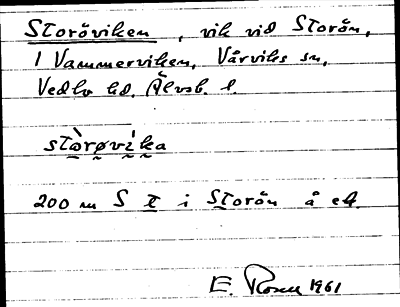 Storöviken, vik vid Storön,
i Vammerviken, Vårviks sn,
Vedbo hd. Älvsb. l.
stòrøvìka
200 m S t i Storön å ek.
E. Rosell 1961